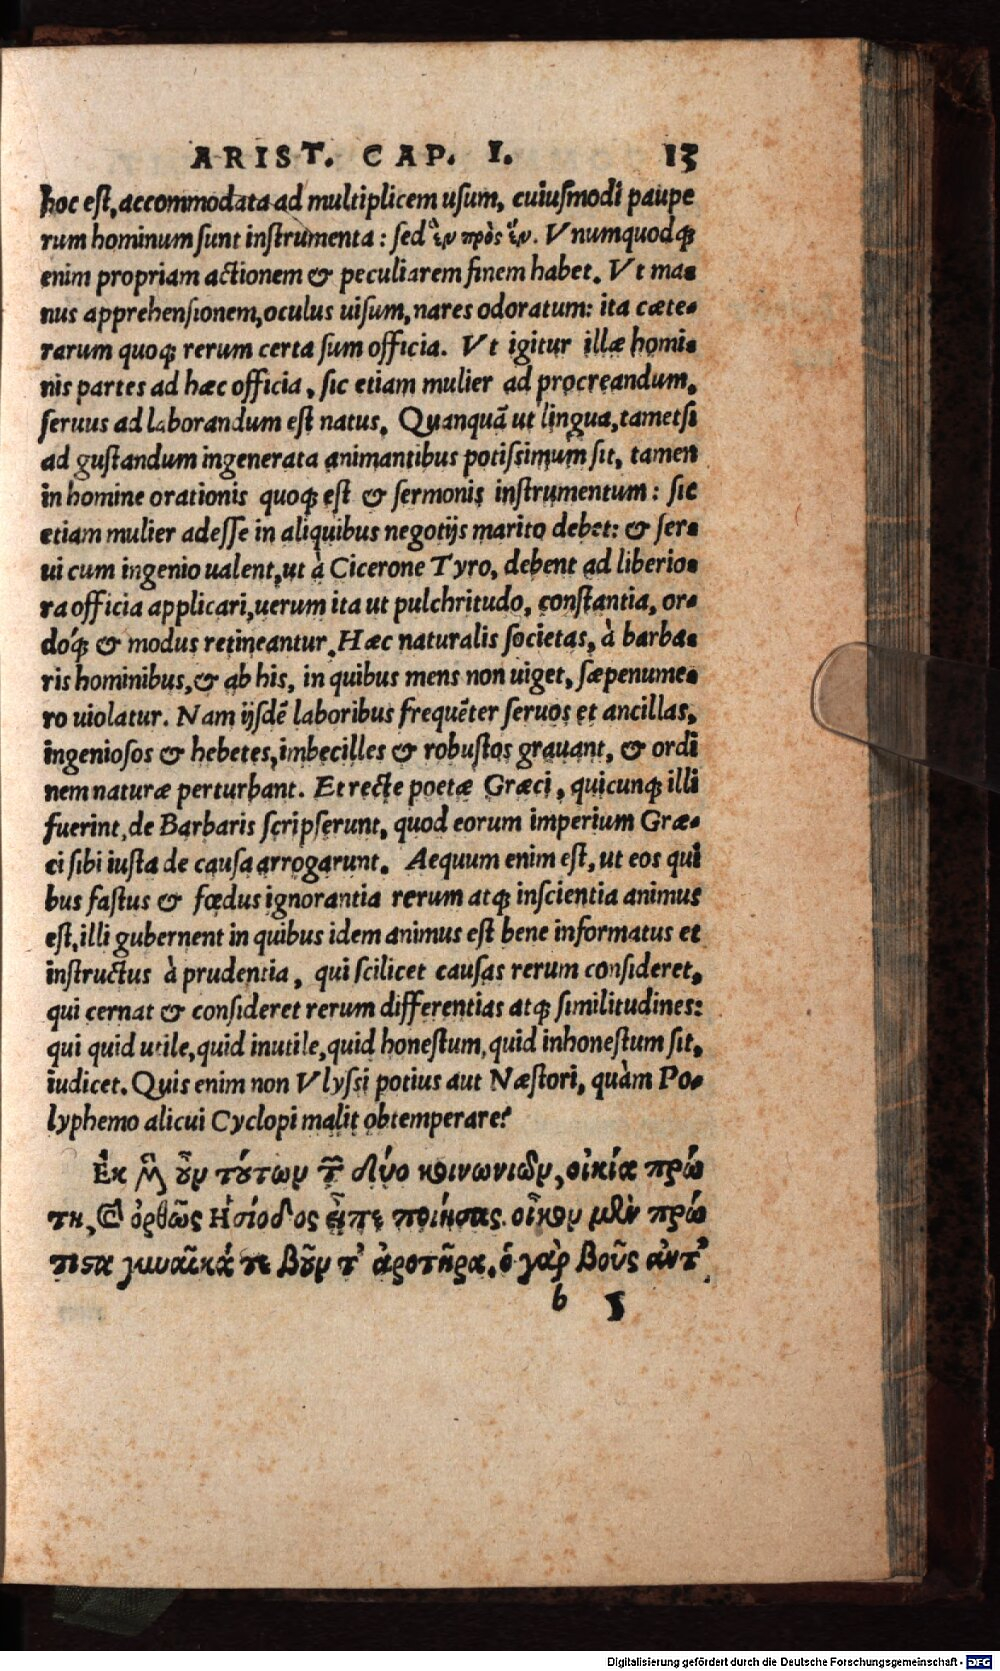 ARIST. CAP. I. 13
hoc est, accommodata ad multiplicem usum, cuiusmodi paupe
rum hominum sunt instrumenta: sed ἓν πρὸς ἕν. Vnumquodq;
enim propriam actionem & peculiarem finem habet. Vt ma-
nus apprehensionem, oculus uisum, nares odoratum: ita cæte-
rarum quoq; rerum certa sum officia. Vt igitur illæ homi-
nis partes ad hæc officia, sic etiam mulier ad procreandum,
seruus ad laborandum est natus. Quanquã ut lingua, tametsi
ad gustandum ingenerata animantibus potissimum sit, tamen
in homine orationis quoq; est & sermonis instrumentum: sic
etiam mulier adesse in aliquibus negotijs marito debet: & ser-
ui cum ingenio ualent, ut à Cicerone Tyro, debent ad liberio-
ra officia applicari, uerum ita ut pulchritudo, constantia, or-
dóq; & modus retineantur. Hæc naturalis societas, à barba-
ris hominibus, & ab his, in quibus mens non uiget, sæpenume-
ro uiolatur. Nam ijsdẽ laboribus frequẽter seruos et ancillas,
ingeniosos & hebetes, imbecilles & robustos grauant, & ordi
nem naturæ perturbant. Et recte poetæ Græci, quicunq; illi
fuerint, de Barbaris scripserunt, quod eorum imperium Græ-
ci sibi iusta de causa arrogarunt. Aequum enim est, ut eos qui
bus fastus & fœdus ignorantia rerum atq; inscientia animus
est, illi gubernent in quibus idem animus est bene informatus et
instructus à prudentia, qui scilicet causas rerum consideret,
qui cernat & consideret rerum differentias atq; similitudines:
qui quid utile, quid inutile, quid honestum, quid inhonestum sit,
iudicet. Quis enim non Vlyssi potius aut Næstori, quàm Po-
lyphemo alicui Cyclopi malit obtemperare?
Ἐκ μὲν οὖν τούτων τῶν δύο κοινωνιῶν, οἰκία πρώ
τη, καὶ ὀρθῶς Ἡσίοδος εἶπε ποιήσας. οἶκον μὲν πρώ
τιστα γυναῖκά τε βοῦν τ' ἀροτῆρα. ὁ γὰρ βοῦς ἀντ'
b 5